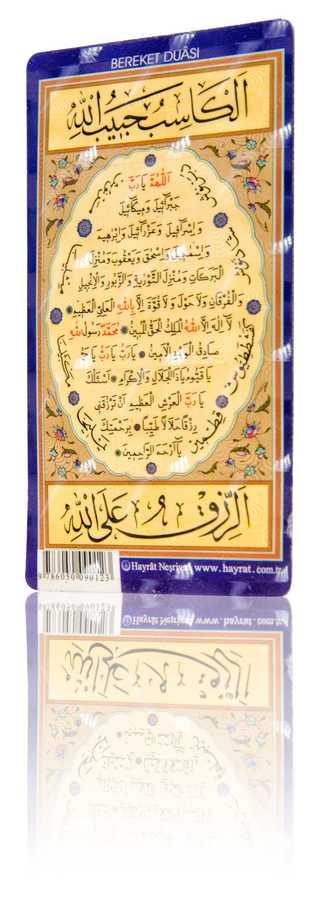 BEREKET DUÂSI
اَلْكَاسِبُ حَبِيبُ اللهِ
اَللّٰهُمَّ يَا رَبَّ
جَبْرَائِيلَ وَمِيكَائِيلَ
وَاِسْرَافِيلَ وَعَزْرَائِيلَ وَاِبْرٰهِيمَ
وَاِسْمٰعِيلَ وَاِسْحٰقَ وَيَعْقُوبَ وَمُنْزِلَ
الْبَرَكَاتِ وَمُنْزِلَ التَّوْرٰيةِ وَالزَّبُورِ وَالْاِنْجِيلِ
وَالْفُرْقَانِ وَلَا حَوْلَ وَلَا قُوَّةَ اِلَّا بِاللهِ الْعَلِيِّ الْعَظِيمِ
لَا اِلٰهَ اِلَّا اللهُ الْمَلِكُ الْحَقُّ الْمُبِينُ مُحَمَّدٌ رَسُولُ اللهِ
صَادِقُ الْوَعْدِ الْاَمِينُ يَا رَبِّ يَا رَبِّ يَا حَيُّ
يَا قَيُّومُ يَا ذَا الْجَلَالِ وَالْاِكْرَامِ اَسْئَلُكَ
يَا رَبَّ الْعَرْشِ الْعَظِيمِ اَنْ تَرْزُقَنِي
رِزْقًا حَلَالًا طَيِّبًا بِرَحْمَتِكَ
يَا اَرْحَمَ الرَّاحِمِينَ
اَلرِّزْقُ عَلَى اللهِ
9786050090123
Hayrât Neşriyat www.hayrat.com.tr